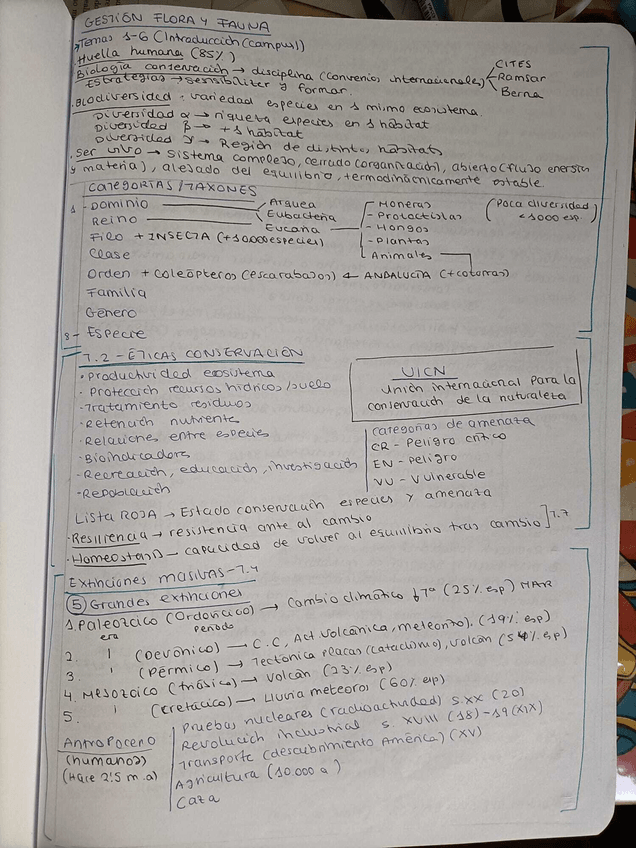 GESTIÓN FLORA Y FAUNA
Temas 1-6 (Introducción (campus))
·Huella humana (85%)
Biología conservación → disciplina (convenios internacionales) CITES
Ramsar
Berna
Estrategias → sensibilizar y formar.
·BIODIVERSIDAD · variedad especies en 1 mismo ecosistema.
Diversidad α → riqueza especies en 1 hábitat
Diversidad β → +1 hábitat
Diversidad γ → Región de distintos hábitats
·Ser vivo → Sistema complejo, cerrado (organización), abierto (flujo energía
y materia), alejado del equilibrio, termodinámicamente estable.
CATEGORÍAS/TAXONES
1 - Dominio Arquea
Eubacteria
Eucaria
Reino
- Moneras
- Protoctistas
- Hongos
- Plantas
Animales
(Poca diversidad
<1000 esp.
Filo + INSECTA (+10.000 especies)
Clase
Orden + Coleópteros (escarabajos) ← ANDALUCÍA (+cotorras)
Familia
Género
8 - Especie
7.2 - ÉTICAS CONSERVACIÓN
·Productividad ecosistema
·Protección recursos hídricos/suelo
·Tratamiento residuos
·Retención nutrientes
·Relaciones entre especies
·Bioindicadores
·Recreación, educación, investigación
·Repoblación
UICN
Unión internacional para la
conservación de la naturaleza
Categorías de amenaza
CR - Peligro crítico
EN - Peligro
VU - Vulnerable
Lista ROJA → Estado conservación especies y amenaza
·Resiliencia → resistencia ante al cambio
·Homeostasis → capacidad de volver al equilibrio tras cambio ] 7.7
Extinciones masivas - 7.4
(5) Grandes extinciones
1. Paleozoico (Ordovícico) → Cambio climático ↓Tª (25% esp) MAR
era periodo
2. " (Devónico) → C.C, Act volcánica, meteorito). (19% esp)
3. " (Pérmico) → Tectónica placas (cataclismo), volcán (54% esp)
4. Mesozoico (triásico) → volcán (23% esp)
5. " (cretácico) → Lluvia meteoros (60% esp)
ANTROPOCENO
(humanos)
(Hace 2'5 m.a)
Pruebas nucleares (radioactividad) s.XX (20)
Revolución industrial s. XVIII (18) - 19 (XIX)
Transporte (descubrimiento América) (XV)
Agricultura (10.000 a)
Caza